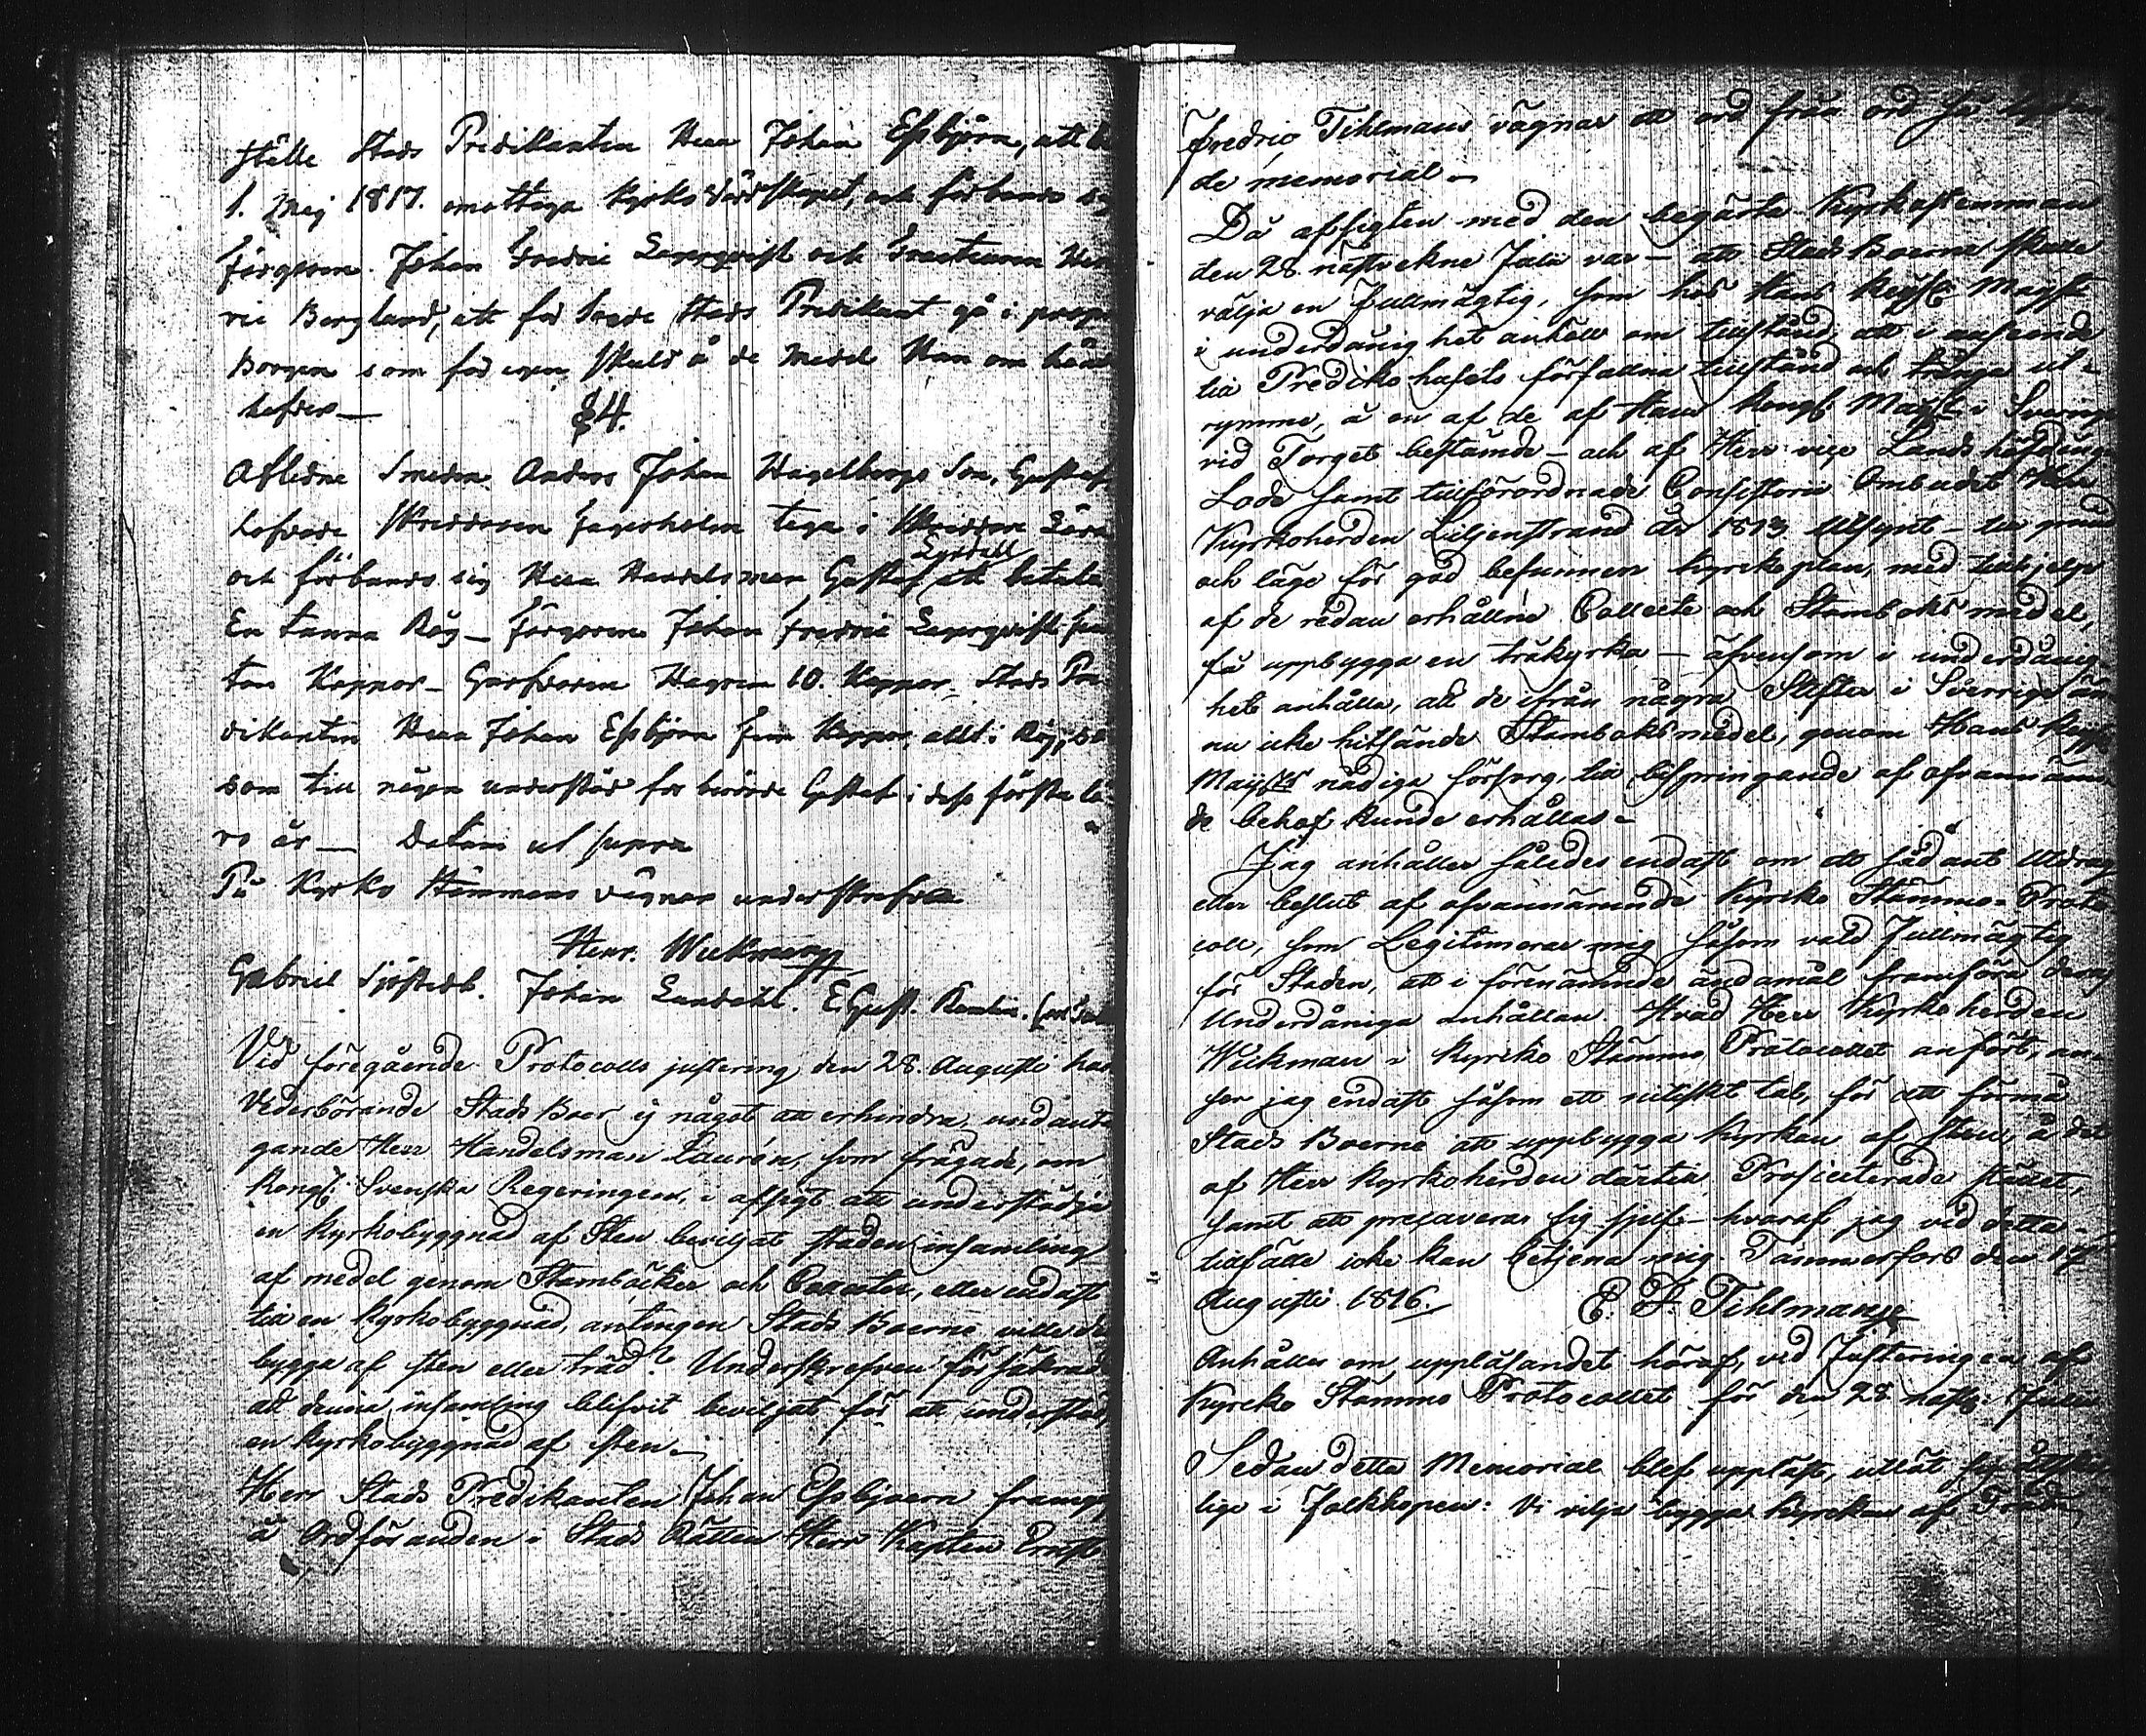 ställe Stads Predikanten Herr Johan Essbjörn, att
1. Maj 1817. emottaga Kyrko Värdskapet, och förbands sig
Färgaren Johan Fredric Lagerqvist och Hen
ric Berglund, att för bem:de Stads Predikant gå i
Borgen som för egen skuld å de medel Han om händer
hafver—
§4.
Aflidne Smeden Anders Johan Hagelbergs Son, Gustaf
lofvade Skräddaren Fagerholm taga i Skräddare Lära
och förbands sig Herr Handelsman Gustaf Lundahl att betala
En tunna Råg— Färgaren Johan Fredric Lagerqvist fem
ton Kappar— Garfvaren Hagren 10. Kappar— Stads Pre
dikanten Herr Johan Essbjörn fem Kappar, allt i Råg,
som till någon understöd för berörde Gustaf i dess första lä
ro år— Datum ut supra
På Kyrko Stämmans vägnar underskrefvo
Henr. Wickman
Gabriel Sjöstedt. Johan Lundahl. E Gust. Ramlin.
Vid föregående Protocolls justering den 28. Augusti had
Vederbörande Stads Boer ej något att erhindra, undanta
gande Herr Handelsman Laurén, som frågade, om
Kongl. Svenska Regeringen, i afsigt att understödja
en Kyrkobyggnad af Sten beviljat staden insamling
af medel genom Stamböcker och Collecter, eller endast
till en Kyrkobyggnad, antingen Stads Boerne ville den
bygga af sten eller träd? Underskrefven försäkrade
att denna insamling blifvit beviljat för att understödja
en kyrkobyggnad af sten.—
Herr Stads Predikanten Johan Essbjoern framgaf
å Ordföranden i Stads Rätten Herr Kapten Ernst
Fredric Tihlmans vägnar ett ord från ord så lydan
de memorial—
Då afsigten med den begärta Kyrkostämman
den 28. nästvekne Julii var— att Stads Boerna skulle
välja en Fullmägtig, som hos Hans Kejs. Majst
i underdånighet anhölle om tillstånd, att i anseende
till Predikohusets förfallna tillstånd och trånga ut-
rymme, å en af de af Hans Kongl Majst i Sverige
vid Torget bestämde— och af Herr vice Landshöfding
Lode samt tillförordnade Consistorii Ombudet Herr
Kyrkoherden Liljenstrand år 1813 utsynt— till grund
och läge för god befunnen kyrkoplan, med tillhjelp
af de redan erhållne Collecte och Stamboksmedel,
få uppbygga en träkyrka,— äfvensom i underdånig
het anhålla, att de ifrån några Stifter i Sverrige än
nu icke hitsände Stamboksmedel, genom Hans Kejs
Majsts nådiga försorg, till bespringande af ofvannämn
de behof kunde erhållas—
Jag anhåller således endast om ett sådant Utdrag
eller beslut af ofvannämnde Kyrko Stämmo- Proto
coll, som Legitimerar mig såsom vald Fullmägtig
för Staden, att i förenämnde ändamål framföra dess
Underdåniga anhållan. Hvad Herr Kyrkoherden
Wickman i Kyrko Stämmo Protocollet anfört, an-
ser jag endast såsom ett nitiskt tal, för att förmå
Stads Boerne att uppbygga Kyrkan af sten, å det
af Herr Kyrkoherden därtill Projecterade stället,
samt att precavera sig sjelf— hvaraf jag vid detta
tillfälle icke kan betjena mig. Tammerfors den 17
Augusti 1816. E. F. Tihlman
Anhålles om uppläsandet häraf, vid Justeringen af
Kyrko Stämmo Protocollet för den 28. nästl. Julii
Sedan detta Memorial blef uppläst, utlät sig åtskil
lige i Folkhopen: Vi vilja bygga kyrckan af Träd